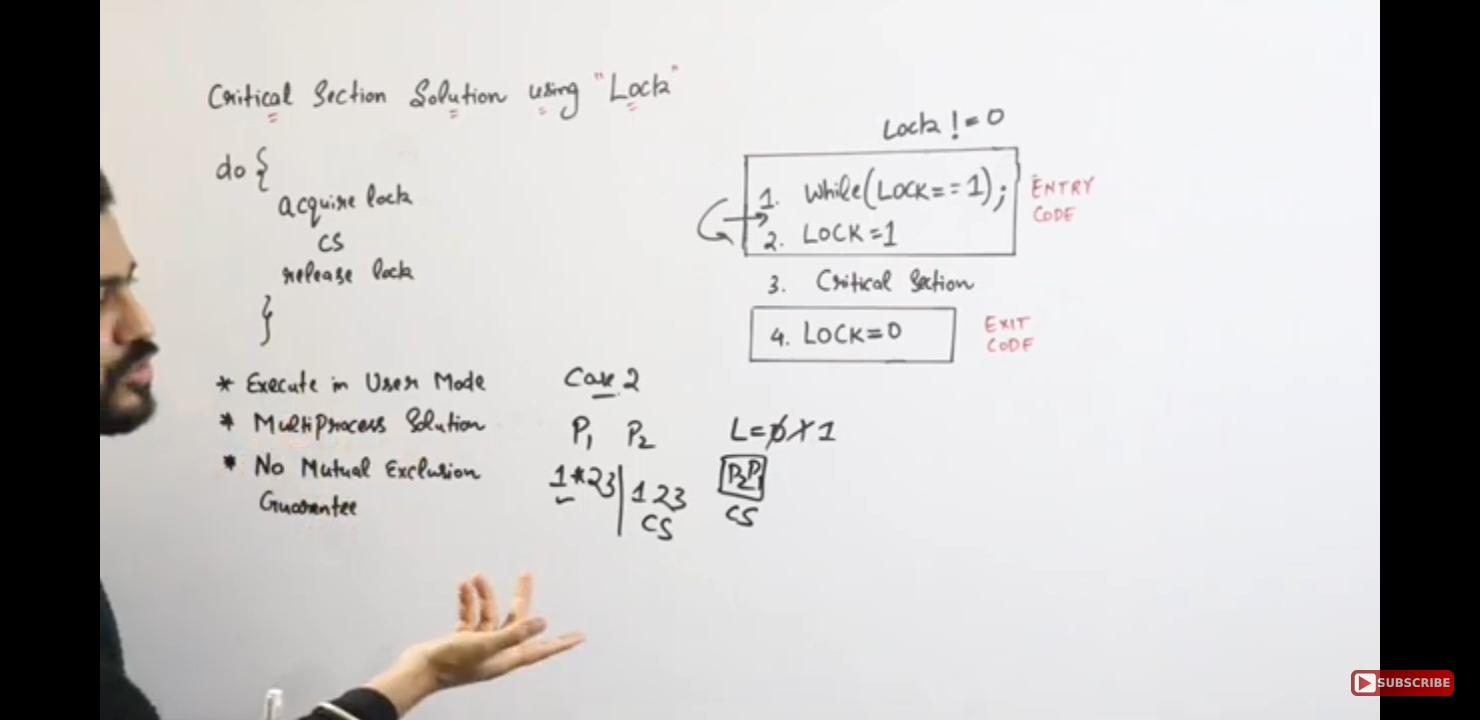 Critical Section Solution using "Lock"
do {
acquire lock
CS
release lock
}
* Execute in User Mode
* MultiProcess Solution
* No Mutual Exclusion
Guarantee
Case 2
P1 P2
1*23 | 123
CS
Lock != 0
1. While(LOCK==1);
2. LOCK=1
ENTRY
CODE
3. Critical Section
4. LOCK=0
EXIT
CODE
L=0 1 1
P2 P1
CS
SUBSCRIBE